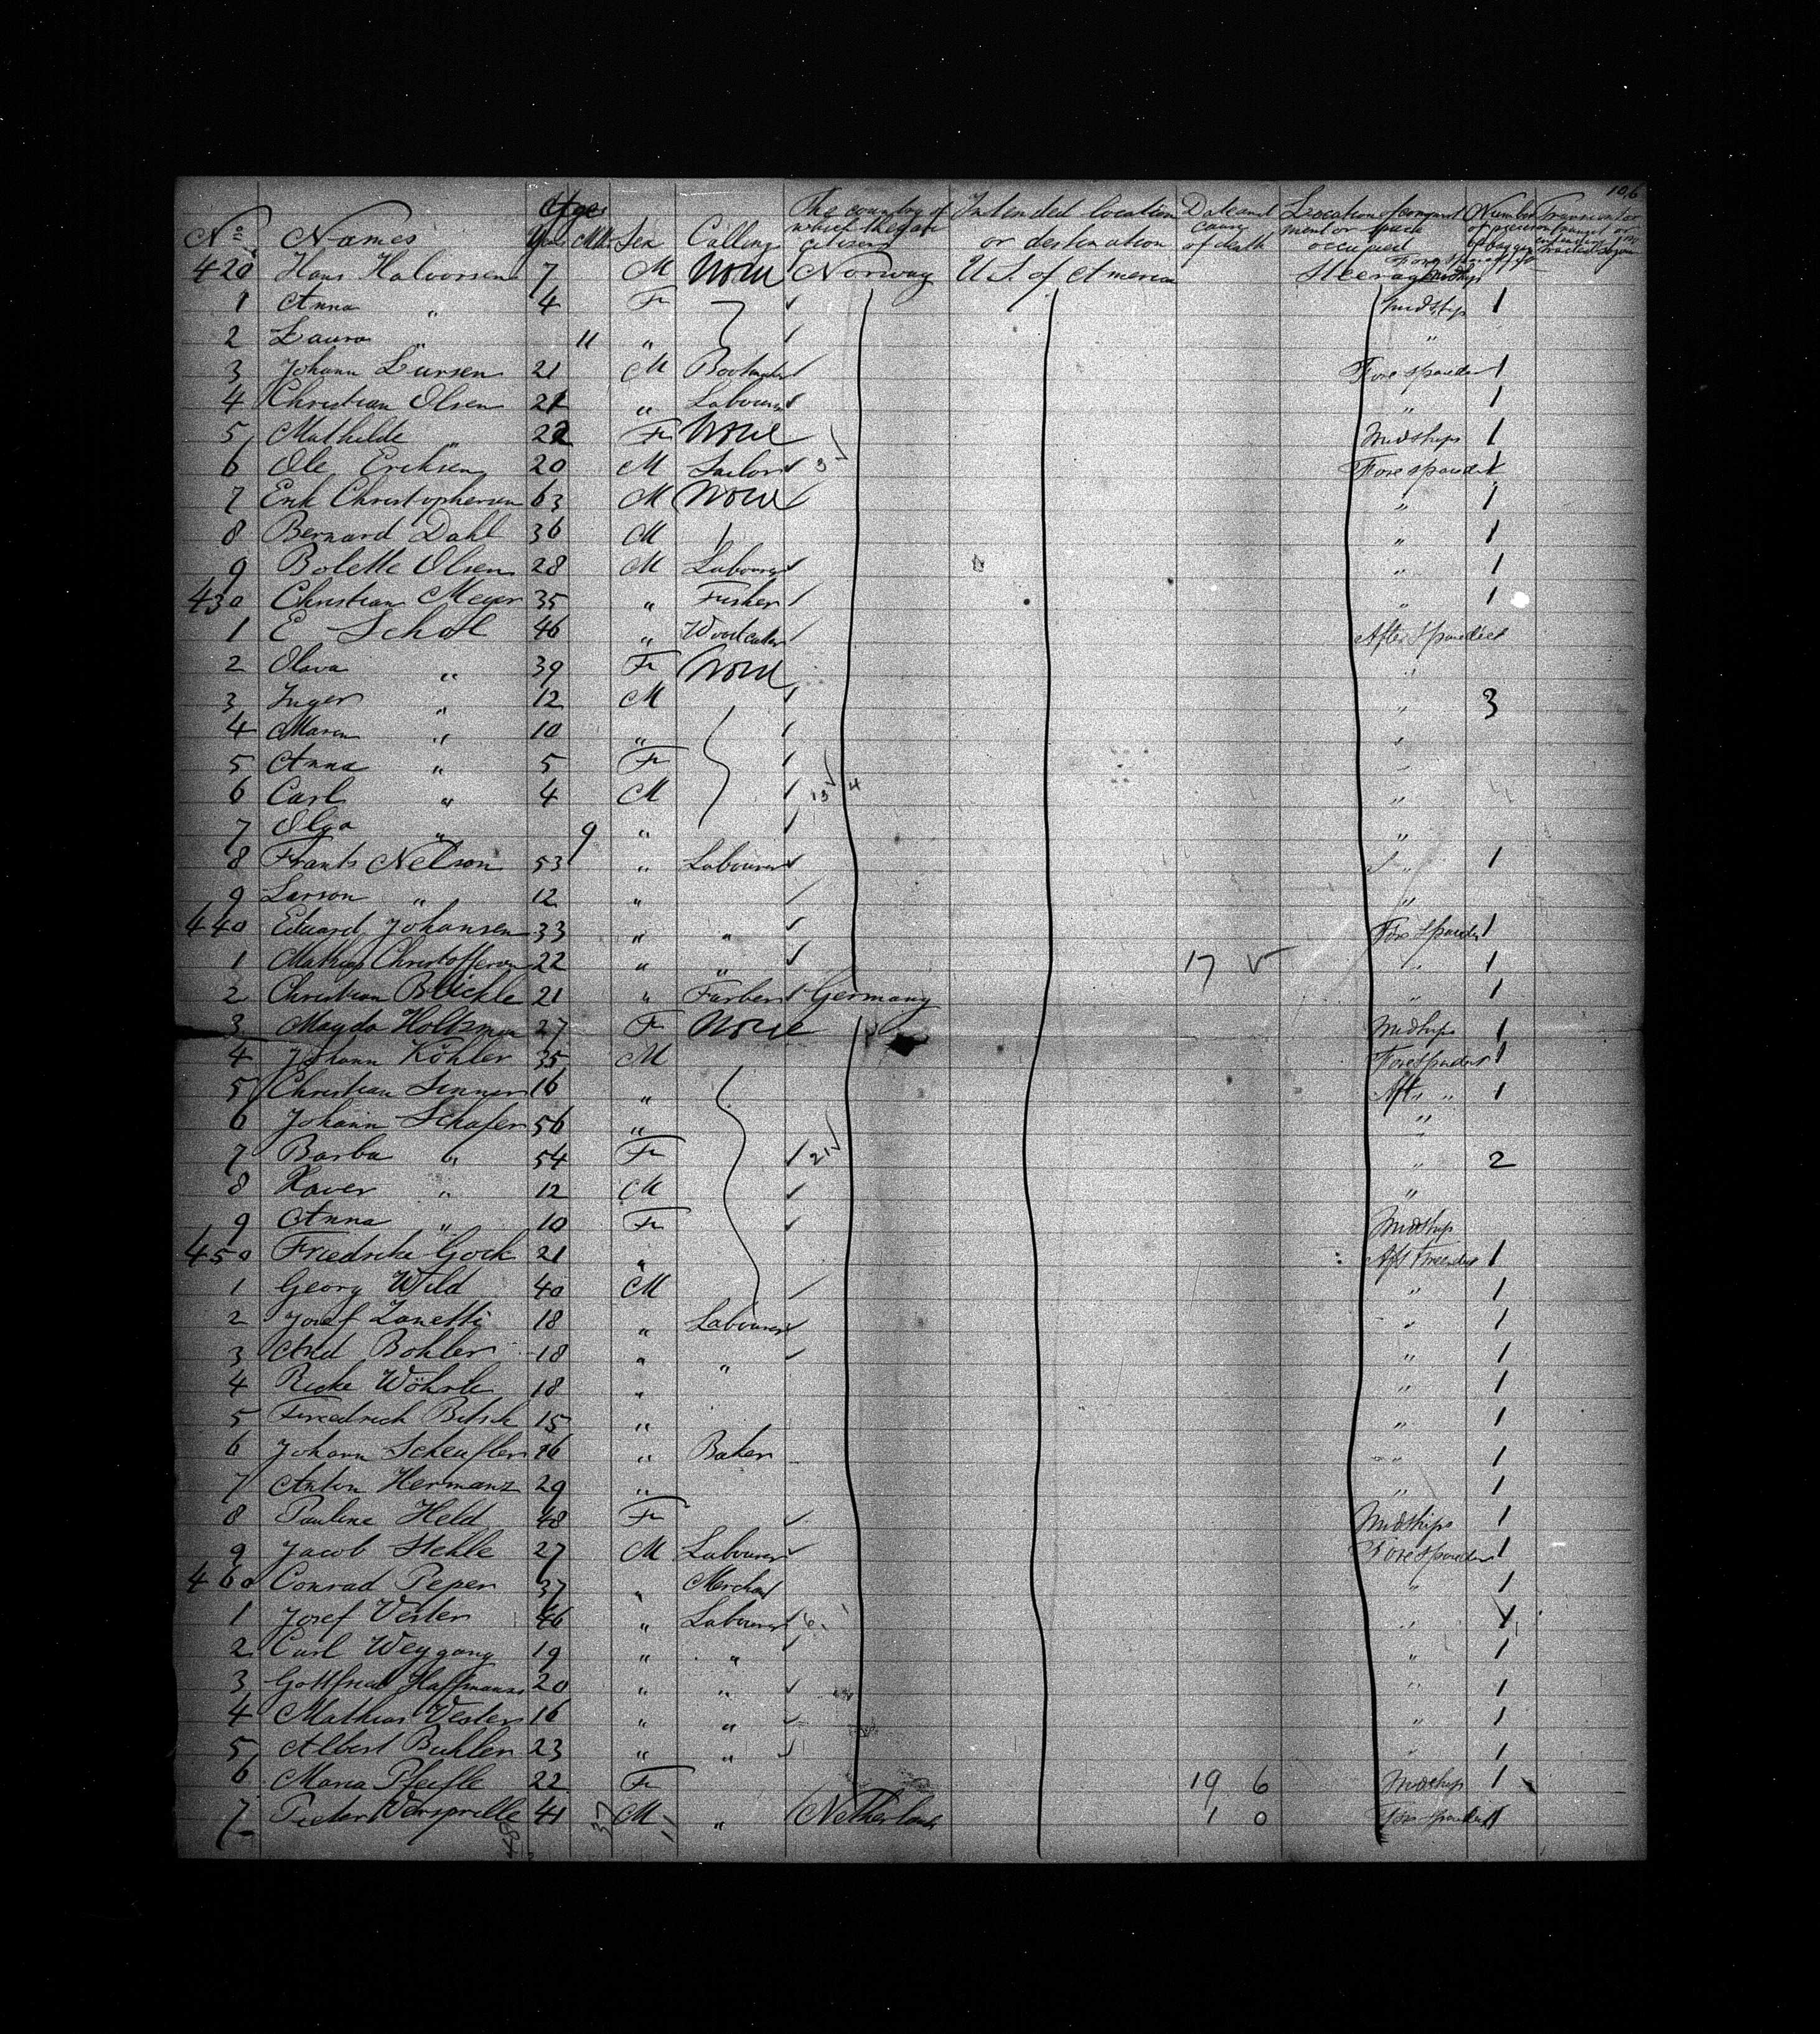 106
No Names Ages Years Mths Sex Calling The country of which they are citizens Intended location or destination Date and cause of death Location of compartment or space occupied Number of pieces of baggage
420 Hans Halvorsen 7 M None Norway U.S. of America Steerage
1 Anna " 4 Fr Midship 1
2 Laura " 11 " "
3 Johann Lursen 21 M Fore spardeck 1
4 Christian Olsen 21 " Labourer " 1
5 Mathilde " 22 Fr None Midships 1
6 Ole Erichsen 20 M Sailor 3 Fore spardeck 1
7 Erik Christophersen 63 M None " 1
8 Bernard Dahl 36 M " 1
9 Bolette Olsen 28 M Labourer " 1
430 Christian Meyer 35 " Fisher " 1
1 E Schol 46 " Woodcutter After Spardeck
2 Olava " 39 Fr None "
3 Inger " 12 M " 3
4 Maren " 10 " "
5 Anna " 5 Fr "
6 Carl " 4 M 13 4 "
7 Olga " 9 " "
8 Frants Nelson 53 " Labourer " 1
9 Larson " 12 " "
440 Eduard Johansen 33 " " Fore Spardeck 1
1 Mathias Christofferson 22 " " 17 " 1
2 Christian Blickle 21 " Farber Germany " 1
3 Magda Holtzman 27 Fr None Midships 1
4 Johann Köhler 35 M Fore spardeck 1
5 Christian Sinner 16 " Aft " " 1
6 Johann Schafer 56 " "
7 Barba " 54 Fr 21 " 2
8 Xaver " 12 M "
9 Anna " 10 Fr Midship
450 Friedricke Gock 21 " Aft 1
1 Georg Wild 40 M " 1
2 Josef Zanetti 18 " Labourer " 1
3 Bohler 18 " " " 1
4 Ricke Wöhrle 18 " " 1
5 Friedrich Bitsch 15 " " 1
6 Johann Scheufler 16 " Baker " 1
7 Anton Hermanz 29 " " 1
8 Pauline Held 48 Fr Midships 1
9 Jacob Stehle 27 M Labourer Fore Spardeck 1
460 Conrad Peper 37 " Merchant " 1
1 Josef Vester 46 " Labourer "
2 Carl Weygang 19 " " " 1
3 Gottfried Haffmanns 20 " " " 1
4 Mathias Vester 16 " " " 1
5 Albert Buhler 23 " " " 1
6 Maria Pfeifle 22 Fr 19 6 Midship 1
7 Pieter Versprille 41 37 M 11 " Netherlands 1 0 Fore Spardeck 1